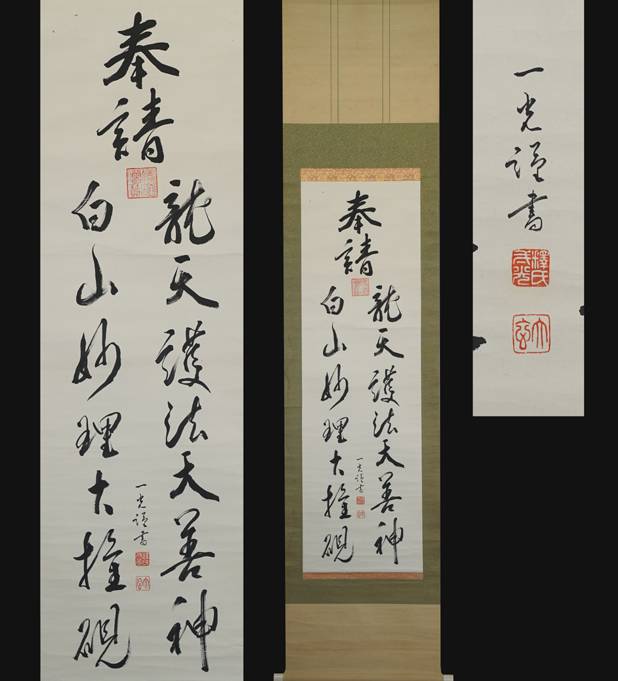 奉請
龍天護法大善神
白山妙理大權現
一光謹書
奉請
龍天護法大善神
白山妙理大權現
一光謹書
一光謹書